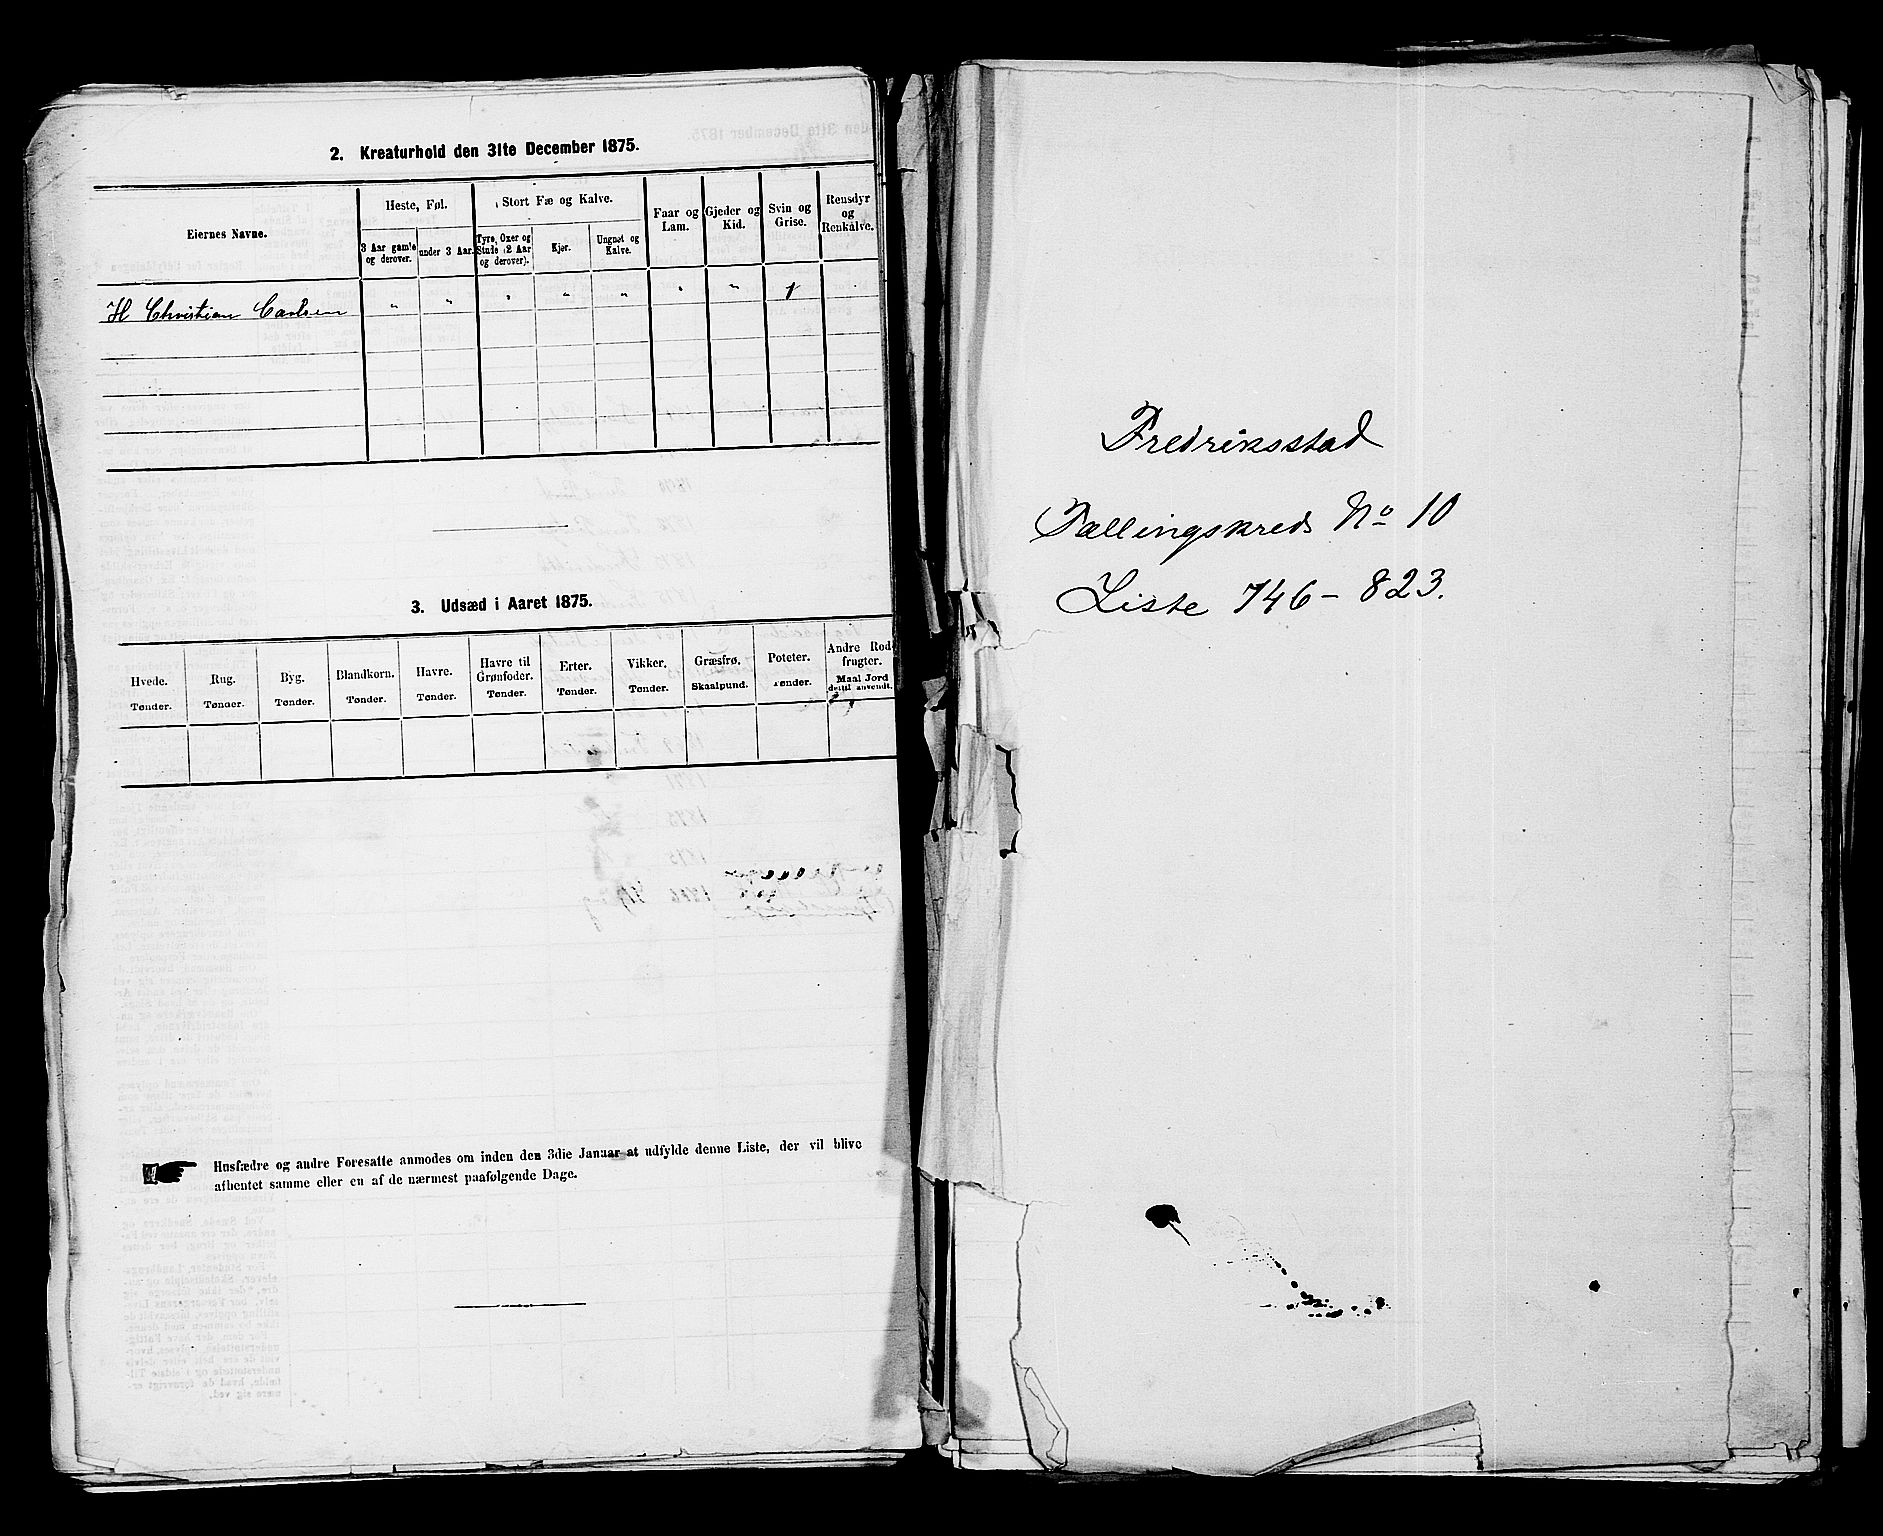 2. Kreaturhold den 31te December 1875.
Eiernes Navne.
Heste, Føl.
3 Aar gamle og derover.
under 3 Aar.
Stort Fæ og Kalve.
Tyre, Oxer og Stude (2 Aar og derover).
Kjør.
Ungnøt og Kalve.
Faar og Lam.
Gjeder og Kid.
Svin og Grise.
Rensdyr og Renkalve.
H Christian Carlsen " " " " " " " 1
3. Udsæd i Aaret 1875.
Hvede. Tønder.
Rug. Tønder.
Byg. Tønder.
Blandkorn. Tønder.
Havre. Tønder.
Havre til Grønfoder. Tønder.
Erter. Tønder.
Vikker. Tønder.
Græsfrø. Skaalpund.
Poteter. Tønder.
Andre Rodfrugter. Maal Jord dertil anvendt.
Husfædre og andre Foresatte anmodes om inden den 3die Januar at udfylde denne Liste, der vil blive
afhentet samme eller en af de nærmest paafølgende Dage.
Fredriksstad
Tællingskreds No 10
Liste 746 - 823.